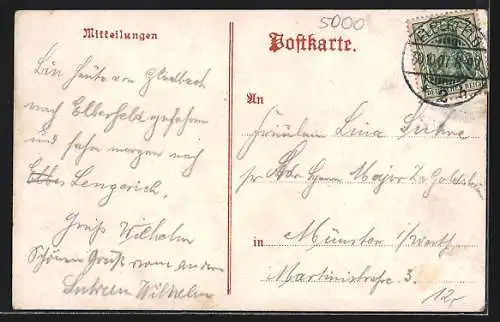 5000
Mitteilungen
Postkarte.
ELBERFELD
Bin heute von Gladbach
nach Elberfeld gefahren
und fahre morgen nach
Lengerich.
Gruß Wilhelm
Schönen Gruß vom andern
Wilhelm
An
Fräulein Lina
pr Adr Herrn Major
in Münster i/Westf
Martinistraße 3.
12,-